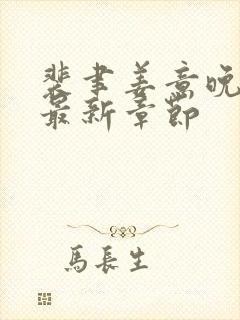 裴聿姜意晚
最新章節
馬長生